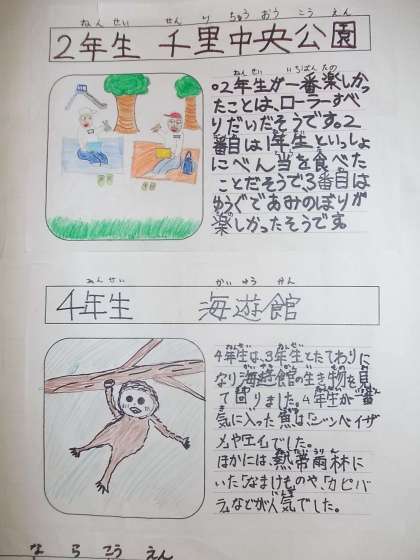 ねん せい せん り ちゅう おう こう えん
2年生 千里中央公園
ねん せい いちばん たの
。2年生が一番楽しかっ
たことは、ローラーすべ
りだいだそうです。2
番目は1年生といっしょ
にべん当を食べた
ことだそうで、3番目は
ゆうぐであみのぼりが
楽しかったそうです。
ねん せい かい ゆう かん
4年生 海遊館
4年生は、3年生とたてわりに
なり海遊館の生き物を見
て回りました。4年生が一番
気に入った魚は「ジンベイザ
メ」や「エイ」でした。
ほかには、熱帯雨林に
いた「なまけもの」や、「カピバ
ラ」などが人気でした。
な ら こう えん